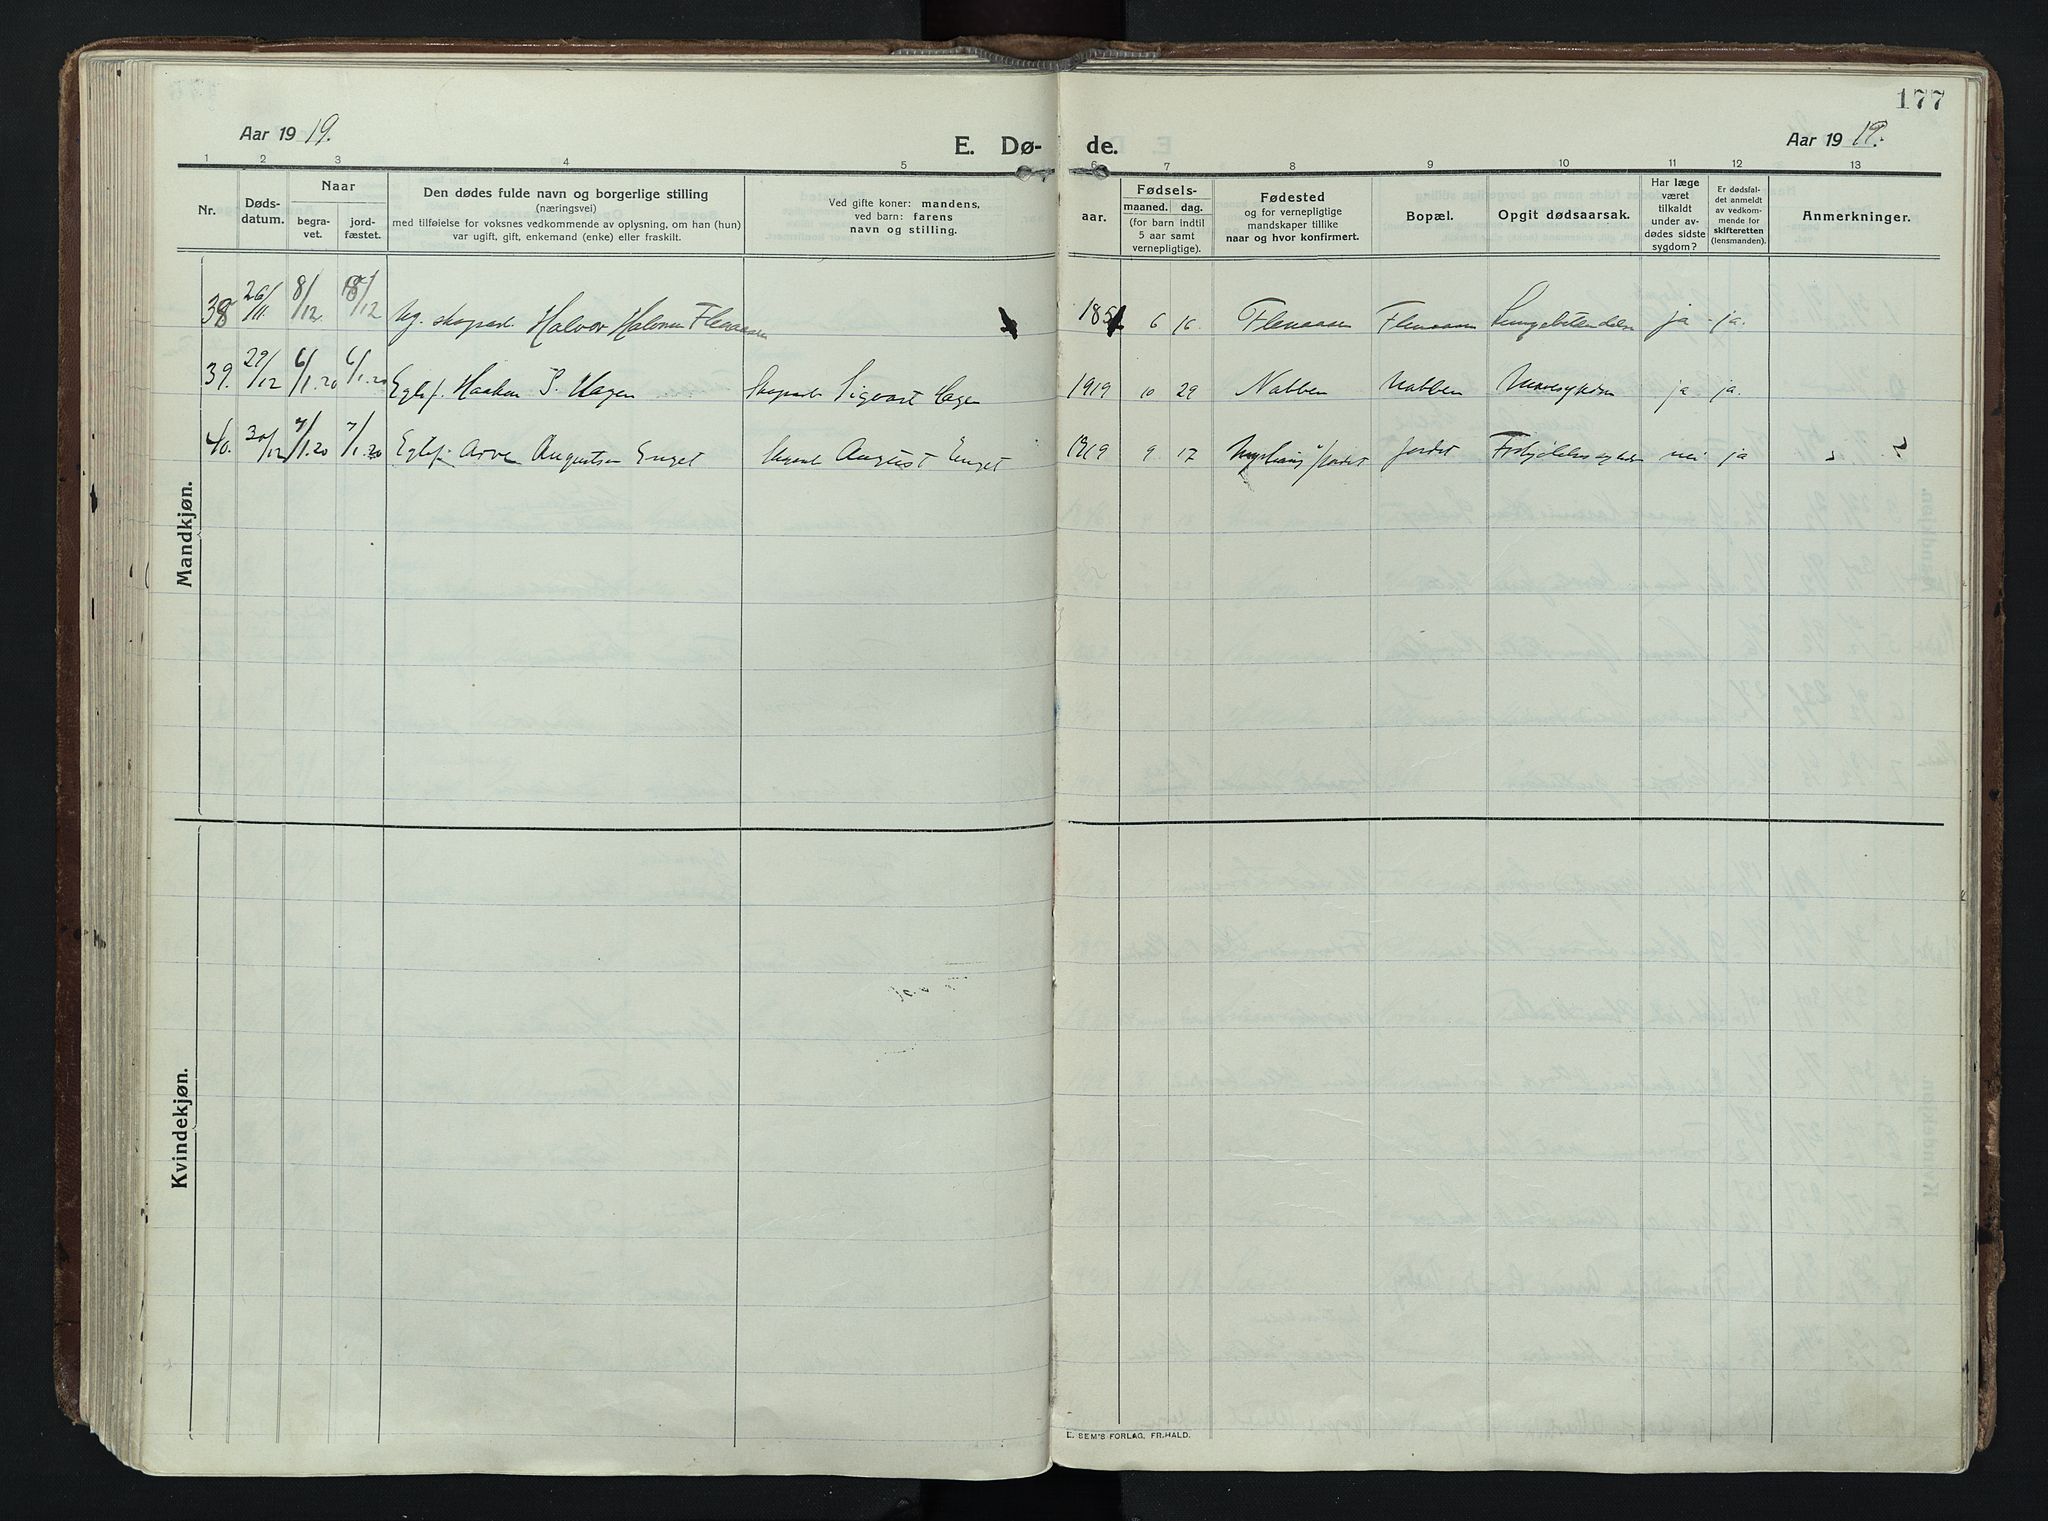 177
Aar 19 19.
E. Dø-
de.
Aar 19 19.
1 2 3 4 5 6 7 8 9 10 11 12 13
Nr.
Døds-
datum.
Naar
begra-
vet.
jord-
fæstet.
Den dødes fulde navn og borgerlige stilling
(næringsvei)
med tilføielse for voksnes vedkommende av oplysning, om han (hun)
var ugift, gift, enkemand (enke) eller fraskilt.
Ved gifte koner: mandens,
ved barn: farens
navn og stilling.
aar.
Fødsels-
maaned. dag.
(for barn indtil
5 aar samt
vernepligtige).
Fødested
og for vernepligtige
mandskaper tillike
naar og hvor konfirmert.
Bopæl.
Opgit dødsaarsak.
Har læge
været
tilkaldt
under av-
dødes sidste
sygdom?
Er dødsfal-
det anmeldt
av vedkom-
mende for
skifteretten
(lensmanden).
Anmerkninger.
Mandkjøn.
38 26/11 8/12 8/12 Ug. Halvor Halvorsen Flenaasen 6 16. Flenaasen Flenaasen ja ja.
39. 29/12 6/1.20 6/1.20 Egtef. Haakon S. Hagen Sigvart Hagen 1919 10 29 Nabben Nabben Mavesygdom ja ja.
40. 30/12 7/1.20 7/1.20 Egtef. Arve Augustsen Enget August Enget 1919 9 17 Jordet nei ja
Kvindekjøn.
E. SEM'S FORLAG, FR.HALD.